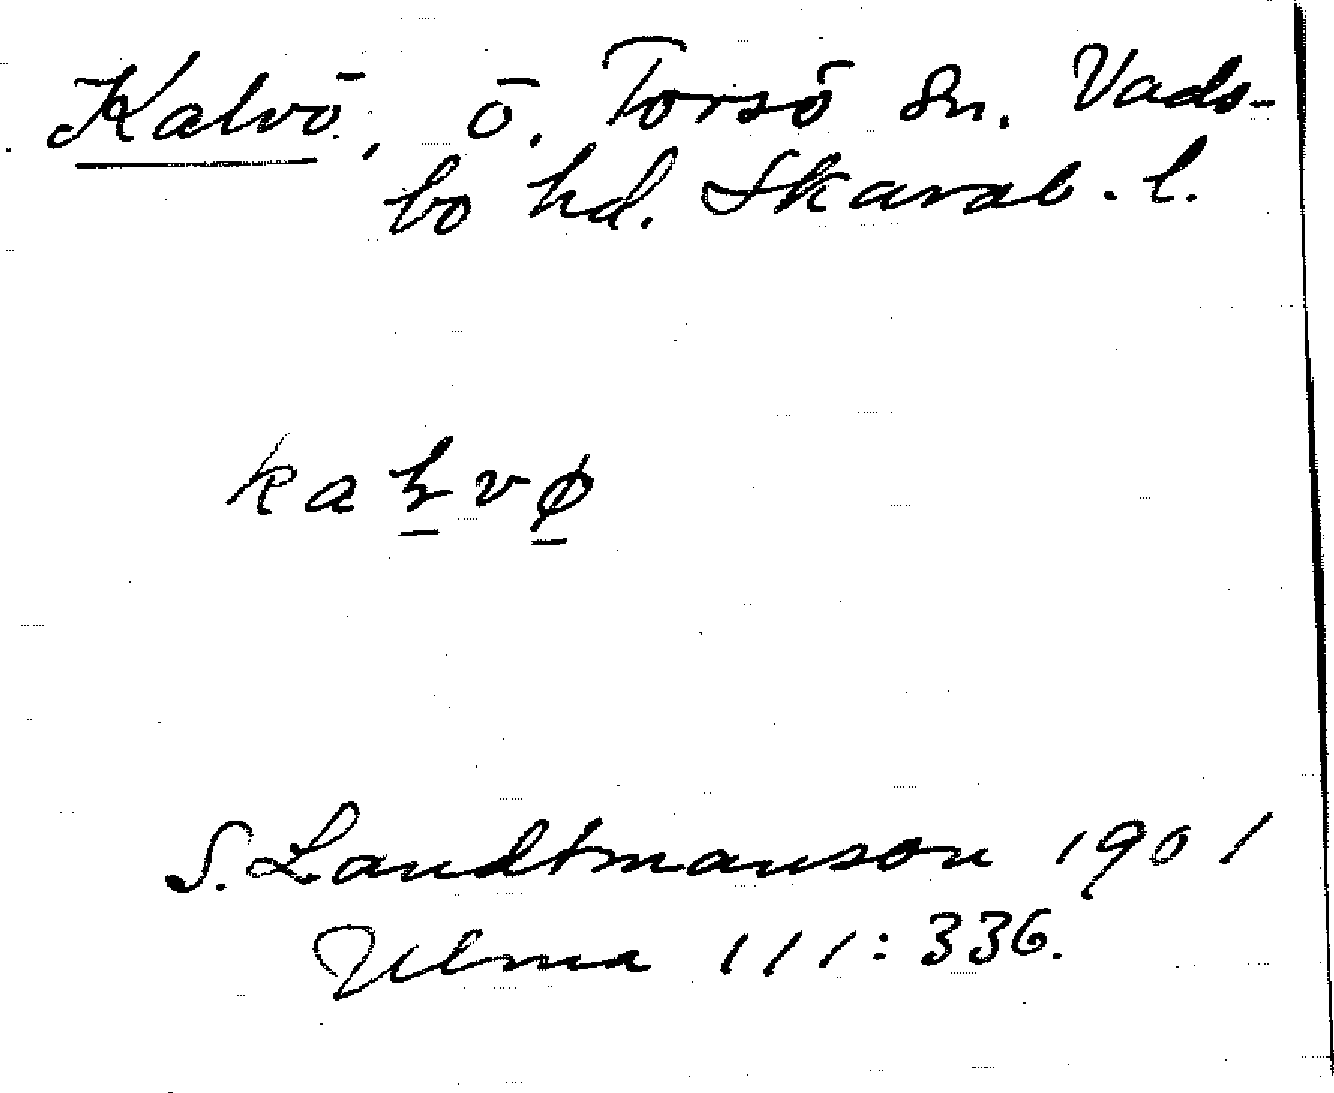 Kalvö, ö. Torsö sn. Vads-
bo hd. Skarab. l.
kaɫvø
S. Landtmanson 1901
Ulma 111:336.